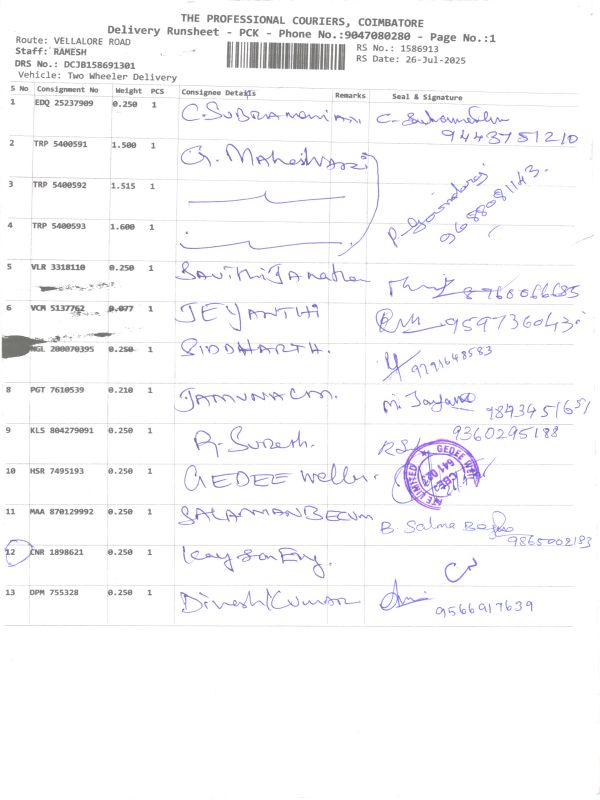 THE PROFESSIONAL COURIERS, COIMBATORE
Delivery Runsheet - PCK - Phone No.:9047080280 - Page No.:1
Route: VELLALORE ROAD
RS No.: 1586913
Staff: RAMESH
RS Date: 26-Jul-2025
DRS No.: DCJB158691301
Vehicle: Two Wheeler Delivery
S No Consignment No Weight PCS Consignee Details Remarks Seal & Signature
1 EDQ 25237909 0.250 1 C. SUBRAMANIAN
9443751210
2 TRP 5400591 1.500 1 G. Maheswari
3 TRP 5400592 1.515 1
9688081143.
4 TRP 5400593 1.600 1
5 VLR 3318110 0.250 1
8760066685
6 VCM 5137762 0.077 1 JEYANTHI
959736043
NGL 200070395 0.250 1 SIDDHARTH.
9791648583
8 PGT 7610539 0.210 1 JAMUNA CM.
9843451651
9 KLS 804279091 0.250 1 R. Suresh.
9360295188
10 HSR 7495193 0.250 1 GEDEE Weiler
11 MAA 870129992 0.250 1 SALAMANBEGUM B. Salma
9865002193
12 CNR 1898621 0.250 1
13 DPM 755328 0.250 1 Dinesh Kumar
9566917639